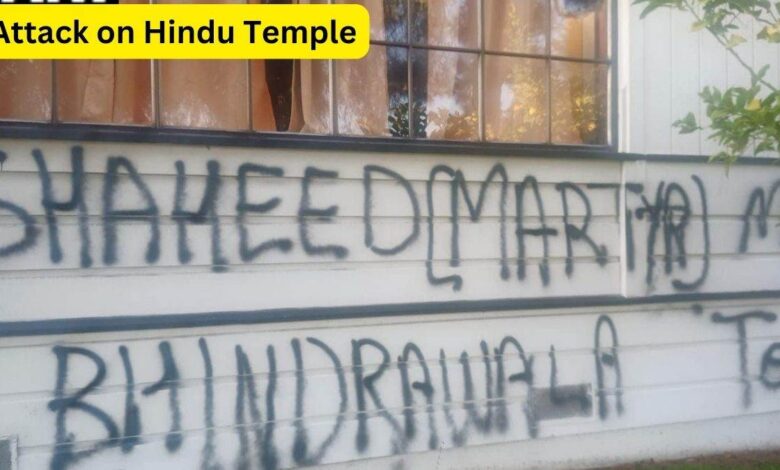 Attack on Hindu Temple
SHAHEED [MARTYR]
BHINDRAWALA Te